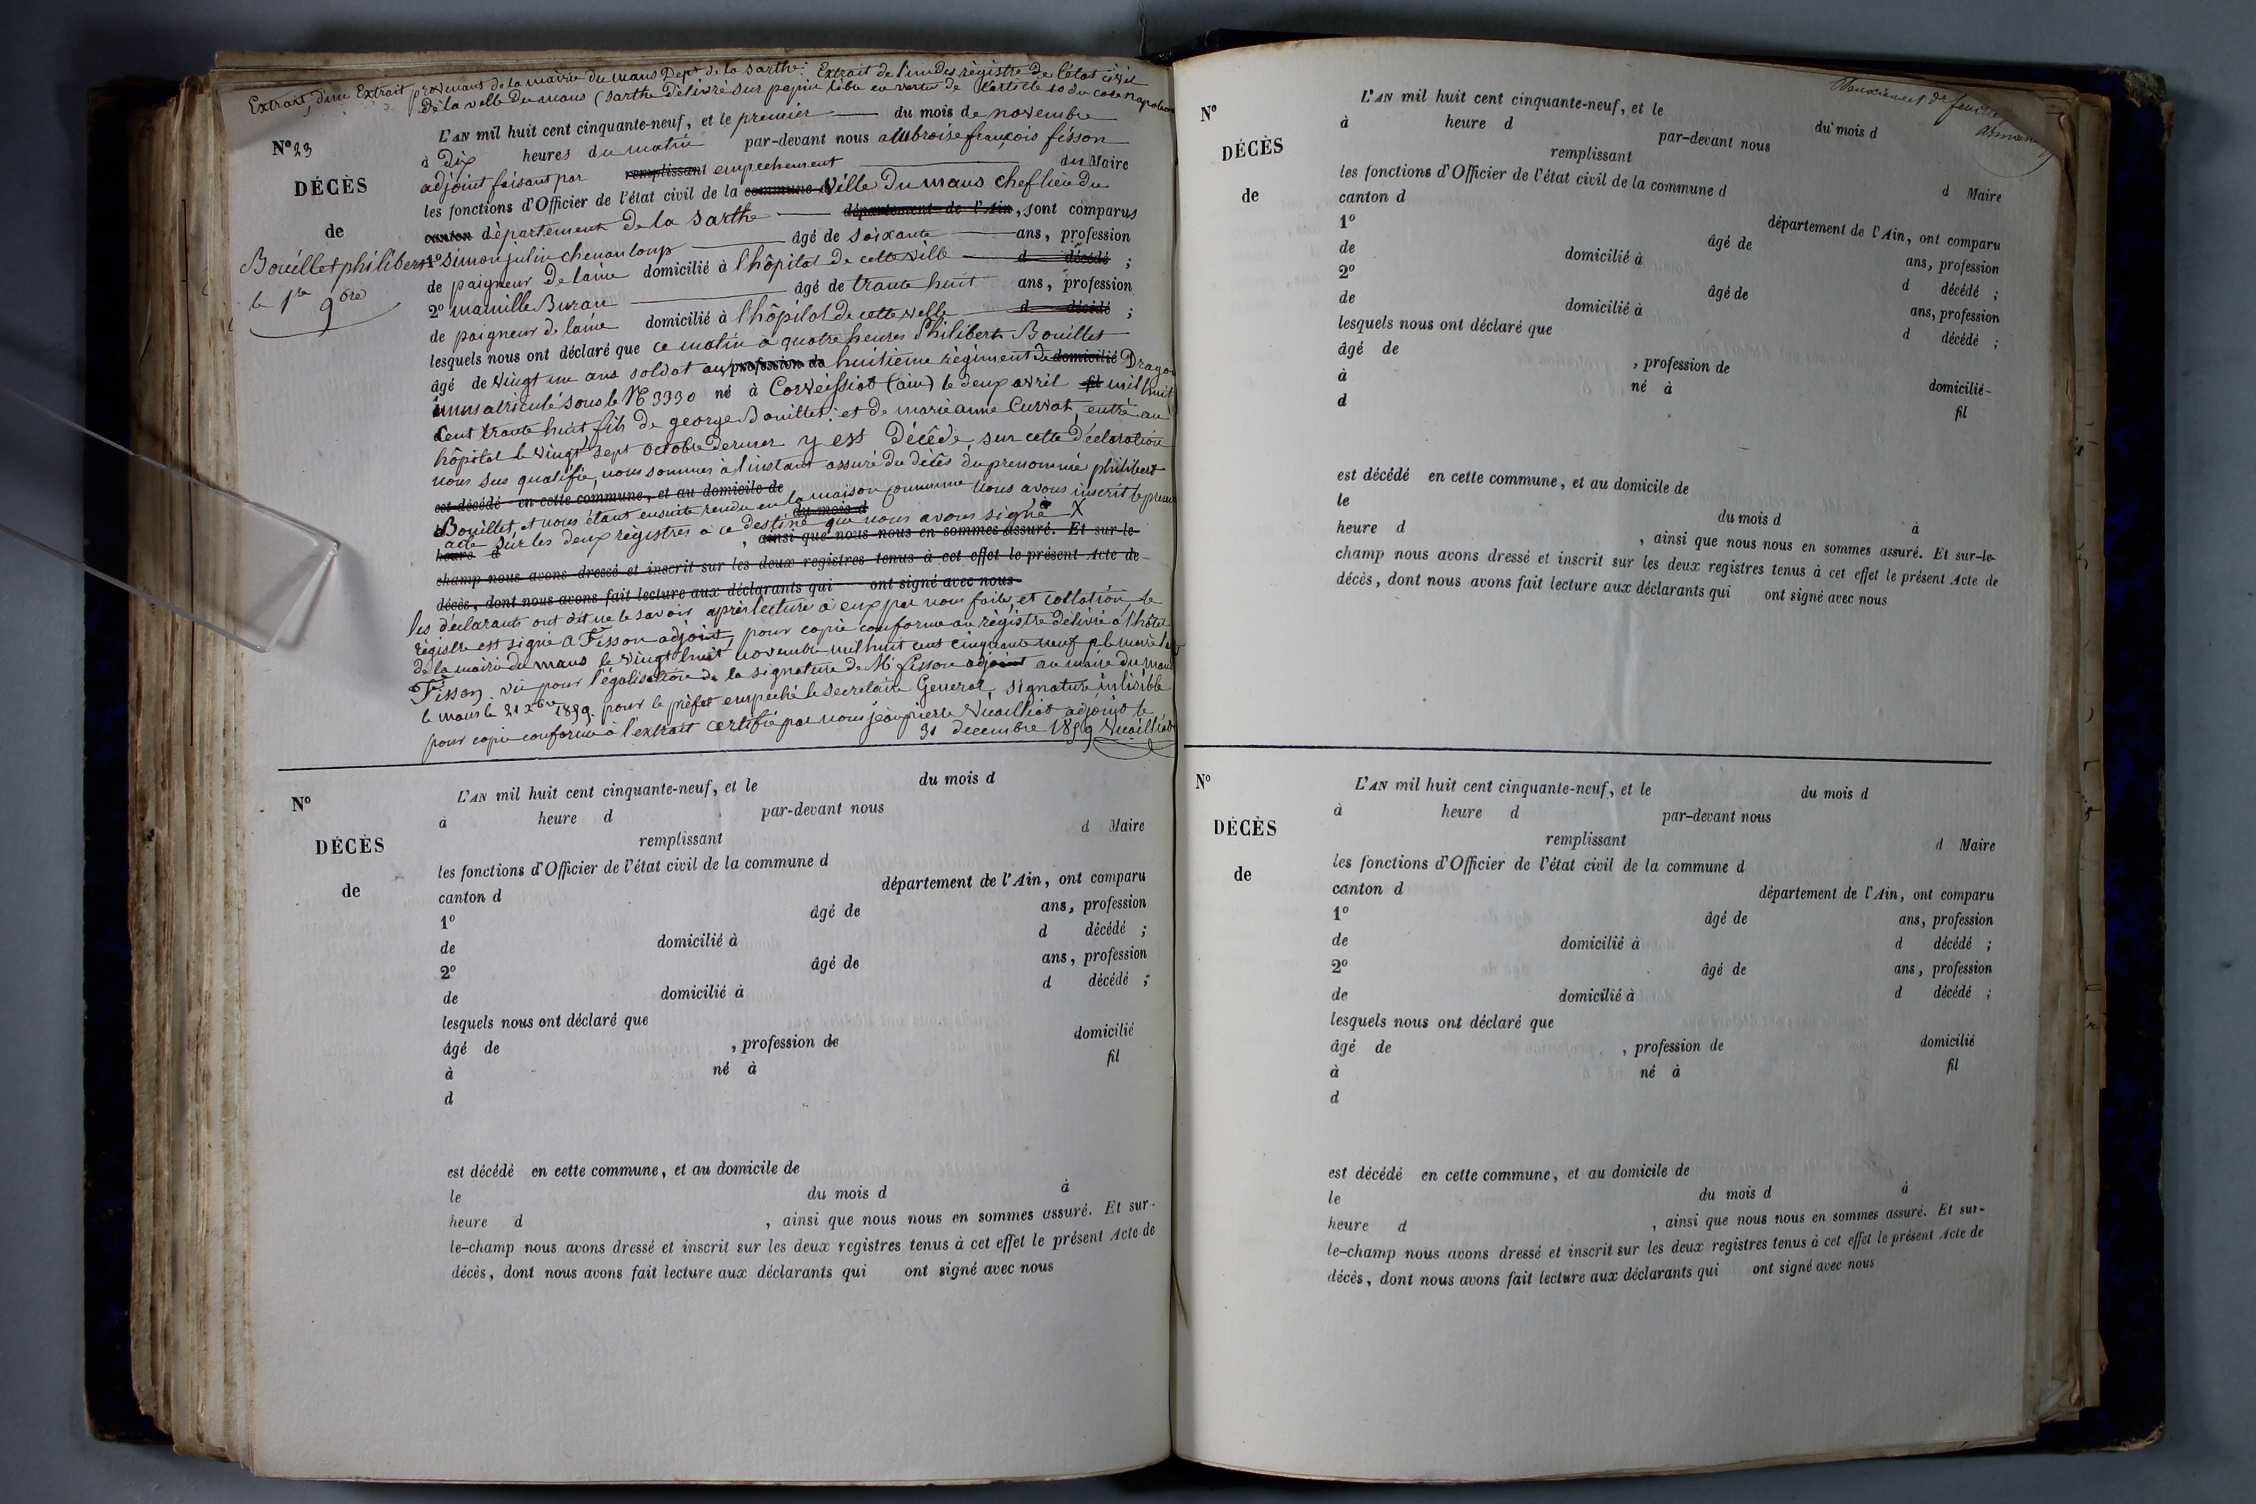 Extrait d'un Extrait provenant de la mairie du mans Dept de la Sarthe: Extrait de l'un des règistre de l'état civil
De la ville Du mans (Sarthe Délivré sur papier libre en vertu de l'article 80 du code napoleon
No 23
DÉCÈS
de
Bouillet philibert
le 1re 9bre
L'AN mil huit cent cinquante-neuf, et le premier du mois de novembre
à Dix heures du matin par-devant nous ambroise françois fisson
adjoint faisant par remplissant empechement du Maire
les fonctions d'Officier de l'état civil de la commune d Ville Du mans chef lieu du
canton département De la Sarthe département de l'Ain, sont comparus
1o Simon julin chenonloup âgé de soixante ans, profession
de paigneur De laine domicilié à l'hôpital de cette ville d décédé ;
2o mamille Buzau âgé de trante huit ans, profession
de paigneur de laine domicilié à l'hôpital de cette ville d décédé ;
lesquels nous ont déclaré que ce matin a quatre heures Philibert Bouillet
âgé de vingt un ans soldat au profession de huitième règiment de domicilié Dragon
immatriculé sous le No 3330 né à Corveissiat (ain) le deux avril fil mil huit
Cent trante huit fils de george Bouillet: et de marieanne Curvat, entré au
hôpital le vingt sept octobre Dernier y est Décédé, sur cette Déclaration
nous sus qualifié, nous sommes à l'instant assuré du décès du prenommé philibert
est décédé en cette commune, et au domicile de
Bouillet, et nous étant ensuite rendu en la maison commune nous avons inscrit le present
le du mois d
acte sur les deux règistres a ce destiné que nous avons signé X
heure d , ainsi que nous nous en sommes assuré. Et sur-le-
champ nous avons dressé et inscrit sur les deux registres tenus à cet effet le présent Acte de
décès, dont nous avons fait lecture aux déclarants qui ont signé avec nous
les déclarants ont dit ne le savoir après lecture a eux par nous faite, et collation, le
règistre est signé A Fisson adjoint, pour copie conforme au règistre délivré à l'hôtel
de la mairie du mans le vingt huit novembre mil huit cent cinquante neuf
Fisson. vu pour l'égalisation de la signature de Mr fisson adjoint au maire du mans
le mans le 21 Xbre 1859. pour le préfet empeché le Secretaire General, signature inlisible
pour copie conforme à l'extrait certifié par nous jean pierre Vuailliat adjoint le
31 decembre 1859 Vuailliat
No
DÉCÈS
de
L'AN mil huit cent cinquante-neuf, et le du mois d
à heure d par-devant nous
remplissant d Maire
les fonctions d'Officier de l'état civil de la commune d
canton d département de l'Ain, ont comparu
1o âgé de ans, profession
de domicilié à d décédé ;
2o âgé de ans, profession
de domicilié à d décédé ;
lesquels nous ont déclaré que
âgé de , profession de domicilié
à né à fil
d
est décédé en cette commune, et au domicile de
le du mois d à
heure d , ainsi que nous nous en sommes assuré. Et sur-
le-champ nous avons dressé et inscrit sur les deux registres tenus à cet effet le présent Acte de
décès, dont nous avons fait lecture aux déclarants qui ont signé avec nous
No
DÉCÈS
de
L'AN mil huit cent cinquante-neuf, et le du mois d
à heure d par-devant nous
remplissant d Maire
les fonctions d'Officier de l'état civil de la commune d
canton d département de l'Ain, ont comparu
1o âgé de ans, profession
de domicilié à d décédé ;
2o âgé de ans, profession
de domicilié à d décédé ;
lesquels nous ont déclaré que
âgé de , profession de domicilié-
à né à fil
d
est décédé en cette commune, et au domicile de
le du mois d à
heure d , ainsi que nous nous en sommes assuré. Et sur-le-
champ nous avons dressé et inscrit sur les deux registres tenus à cet effet le présent Acte de
décès, dont nous avons fait lecture aux déclarants qui ont signé avec nous
No
DÉCÈS
de
L'AN mil huit cent cinquante-neuf, et le du mois d
à heure d par-devant nous
remplissant d Maire
les fonctions d'Officier de l'état civil de la commune d
canton d département de l'Ain, ont comparu
1o âgé de ans, profession
de domicilié à d décédé ;
2o âgé de ans, profession
de domicilié à d décédé ;
lesquels nous ont déclaré que
âgé de , profession de domicilié
à né à fil
d
est décédé en cette commune, et au domicile de
le du mois d à
heure d , ainsi que nous nous en sommes assuré. Et sur-
le-champ nous avons dressé et inscrit sur les deux registres tenus à cet effet le présent Acte de
décès, dont nous avons fait lecture aux déclarants qui ont signé avec nous